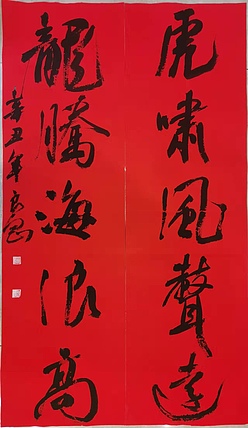 虎嘯風聲遠
龍騰海浪高
辛丑年